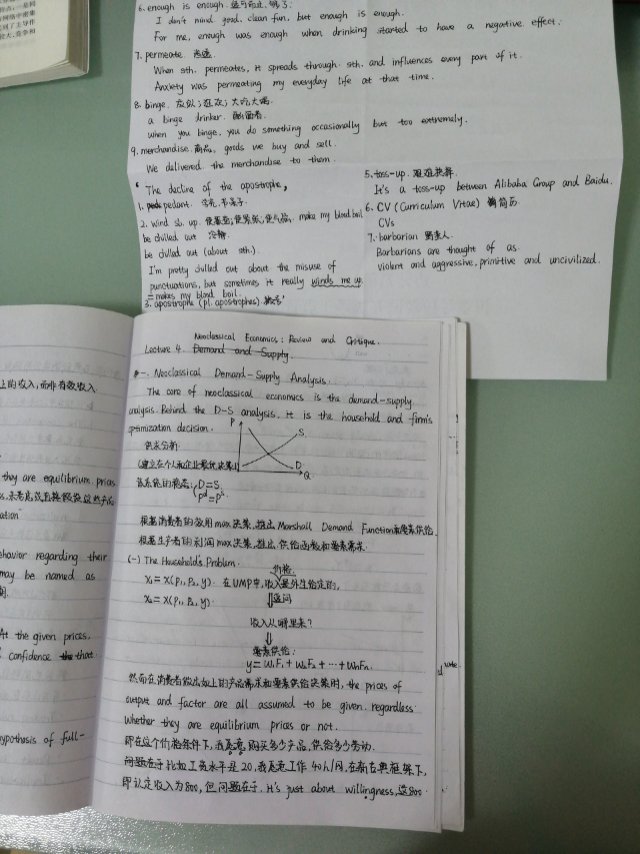 6. enough is enough. 适可而止, 够了.
I don't mind good, clean fun, but enough is enough.
For me, enough was enough when drinking started to have a negative effect.
7. permeate.
When sth. permeates, it spreads through sth. and influences every part of it.
Anxiety was permeating my everyday life at that time.
8. binge. 狂欢; 大吃大喝.
a binge drinker. 酗酒者.
when you binge, you do something occasionally but too extremely.
9. merchandise. 商品, goods we buy and sell.
We delivered the merchandise to them.
" The decline of the apostrophe "
1. pedant.
2. wind sb. up. make my blood boil
be chilled out 冷静
be chilled out (about sth.)
I'm pretty chilled out about the misuse of
punctuations, but sometimes it really winds me up.
= makes my blood boil.
3. apostrophe (pl. apostrophes).
5. toss-up. 难难抉择.
It's a toss-up between Alibaba Group and Baidu.
6. CV (Curriculum Vitae) 简历
CVs
7. barbarian 野蛮人.
Barbarians are thought of as
violent and aggressive, primitive and uncivilized.
上的收入, 而非有效收入
they are equilibrium prices
ation"
ehavior regarding their
may be named as
At the given prices,
confidence that
hypothesis of full-
Neoclassical Economics: Review and Critique.
Lecture 4. Demand and Supply.
一. Neoclassical Demand-Supply Analysis.
The core of neoclassical economics is the demand-supply
analysis. Behind the D-S analysis, it is the household and firm's
optimization decision.
供求分析
P
S
D
Q
(建立在个人和企业最优决策上)
D=S
Pd=Ps
根据消费者的效用max决策, 推出Marshall Demand Function和要素供给.
根据生产者的利润max决策, 推出供给函数和要素需求.
(一) The Household's Problem.
价格
x₁ = x(p₁, p₂, y). 在UMP中, 收入是外生给定的,
x₂ = x(p₁, p₂, y). 追问
收入从哪里来?
要素供给:
y = w₁F₁ + w₂F₂ + ⋯ + wₙFₙ.
然而在消费者做出如上的产品需求和要素供给决策时, the prices of
output and factor are all assumed to be given. regardless
whether they are equilibrium prices or not.
即在这个价格条件下, 我愿意购买多少产品, 供给多少劳动.
问题在于比如工资水平是20, 我愿意工作40h/周, 在新古典框架下,
即认定收入为800, 但问题在于, it's just about willingness, 这800